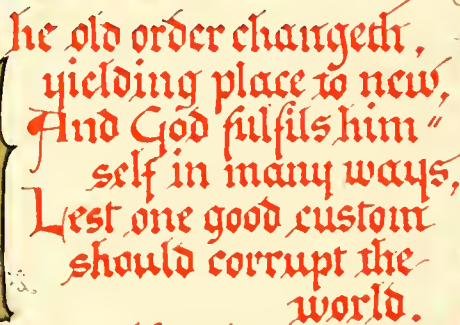 he old order changeth,
yielding place to new,
And God fulfils him"
self in many ways,
Lest one good custom
should corrupt the
world.